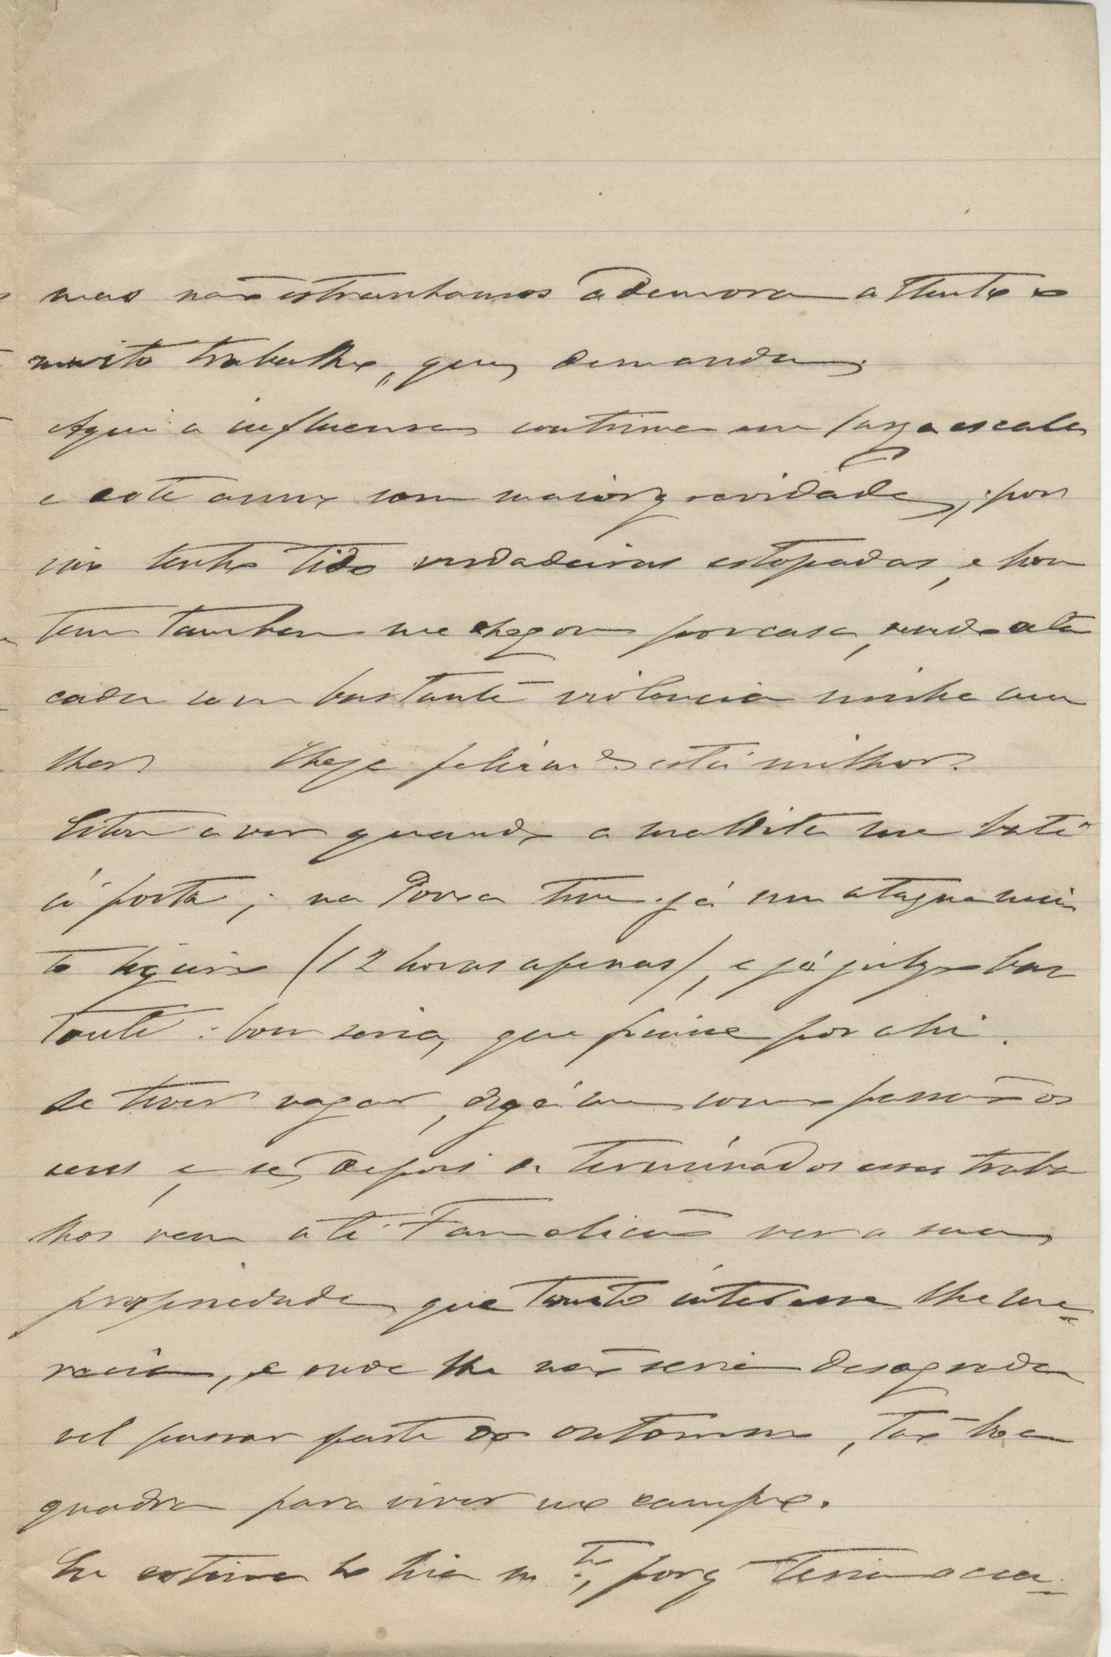 mas não estranhamos a demora attento o
muito trabalho, que demanda.
Aqui a influensa continua em larga escala
e este anno com maior gravidade, por
isso tenho tido verdadeiras estopadas, e hon
tem tambem me chegou por casa, sendo ata
cada com bastante violencia minha mu
lher Hoje felizm.e está milhor.
Estou a ver quando a maldita me bate
á porta; na Povoa tive já um ataque mui
to ligeiro (12 horas apenas), e já julgo bas
tante: bom seria, que ficasse por ahi.
Se tiver vagar, diga-me como passão os
seus, e se, depois de terminados esses traba
lhos vem até Famalicão ver a sua
propriedade que tanto interesse lhe me-
recia, e onde lhe não seria desagrada
vel passar parte do outomno, tão boa
quadra para viver no campo.
Eu estima-lo hia m.to, porq teria occa-